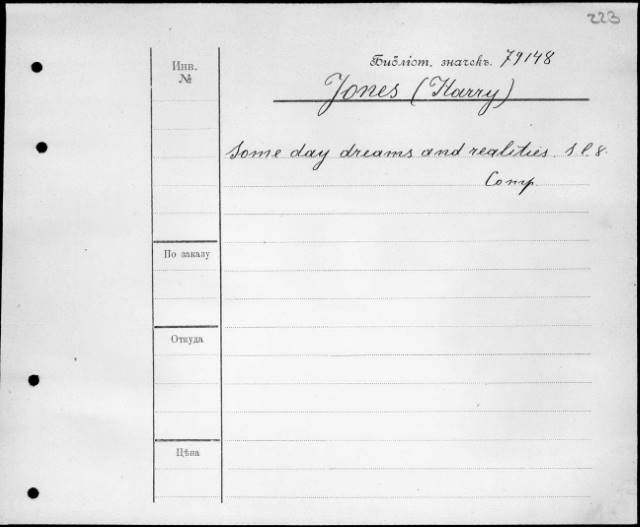 223
Библіот. значекъ. 79148
Инв.
№
Jones (Harry)
Some day dreams and realities. s. l. 8.
Comp.
По заказу
Откуда
Цѣна